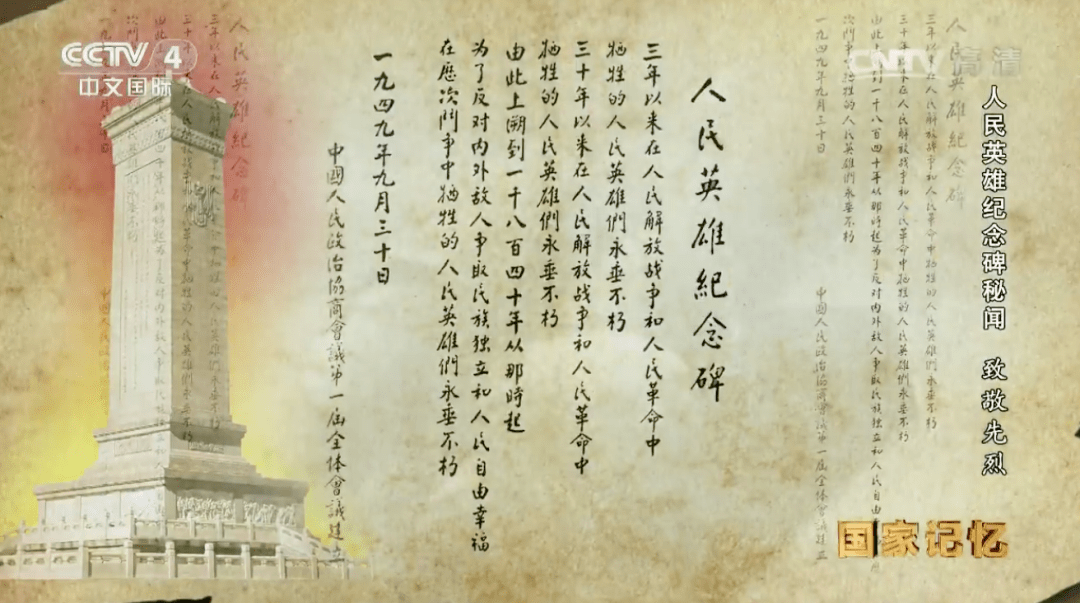 CCTV 4
中文国际
CNTV 高清
人民英雄纪念碑秘闻 致敬先烈
人民英雄紀念碑
三年以来在人民解放战争和人民革命中
牺牲的人民英雄們永垂不朽
三十年以来在人民解放战争和人民革命中
牺牲的人民英雄們永垂不朽
由此上溯到一千八百四十年从那時起
为了反对内外敌人争取民族独立和人民自由幸福
在历次鬥争中牺牲的人民英雄們永垂不朽
一九四九年九月三十日
中國人民政治協商會議第一屆全体會議建立
国家记忆